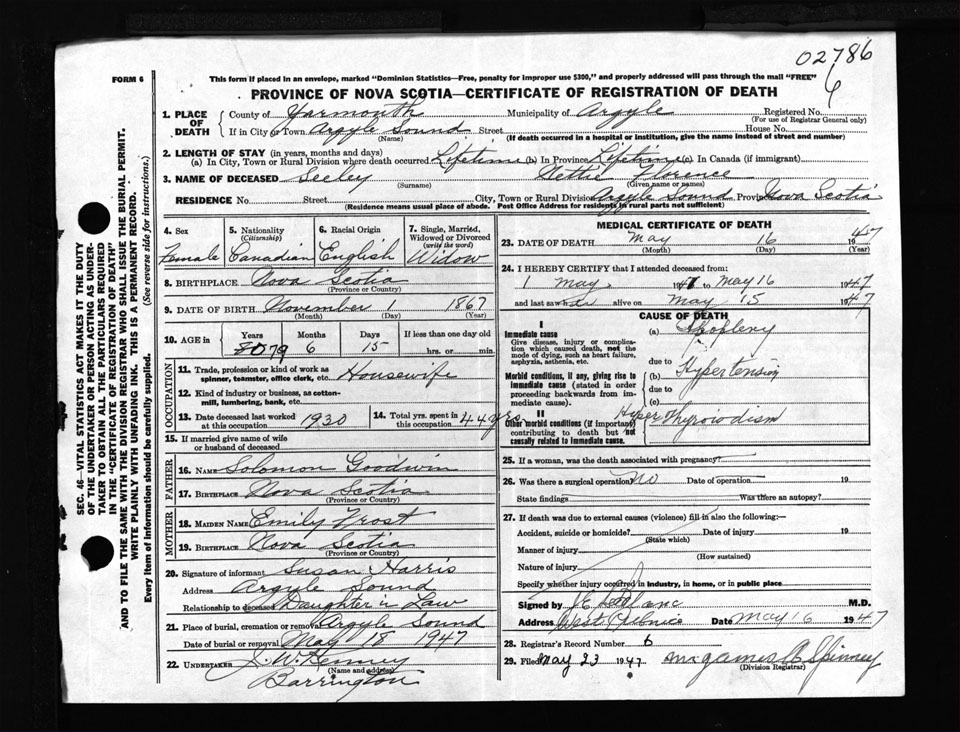 02786
6
FORM 6
This form if placed in an envelope, marked "Dominion Statistics—Free, penalty for improper use $300," and properly addressed will pass through the mail "FREE"
PROVINCE OF NOVA SCOTIA—CERTIFICATE OF REGISTRATION OF DEATH
1. PLACE OF DEATH
County of Yarmouth Municipality of Argyle Registered No.
(For use of Registrar General only)
If in City or Town Argyle Sound Street House No.
(Name) (If death occurred in a hospital or institution, give the name instead of street and number)
2. LENGTH OF STAY (in years, months and days)
(a) In City, Town or Rural Division where death occurred Lifetime (b) In Province Lifetime (c) In Canada (if immigrant)
3. NAME OF DECEASED Seeley Nettie Florence
(Surname) (Given name or names)
RESIDENCE No. Street City, Town or Rural Division Argyle Sound Province Nova Scotia
(Residence means usual place of abode. Post Office Address for residents in rural parts not sufficient)
4. Sex
Female
5. Nationality
(Citizenship)
Canadian
6. Racial Origin
English
7. Single, Married, Widowed or Divorced
(write the word)
Widow
8. BIRTHPLACE Nova Scotia
(Province or Country)
9. DATE OF BIRTH November 1 1867
(Month) (Day) (Year)
10. AGE in Years Months Days If less than one day old
80 79 6 15 hrs. or min.
OCCUPATION
11. Trade, profession or kind of work as spinner, teamster, office clerk, etc. Housewife
12. Kind of industry or business, as cotton-mill, lumbering, bank, etc.
13. Date deceased last worked at this occupation 1930
14. Total yrs. spent in this occupation 44 yrs
15. If married give name of wife or husband of deceased
FATHER
16. Name Solomon Goodwin
17. Birthplace Nova Scotia
(Province or Country)
MOTHER
18. Maiden Name Emily Frost
19. Birthplace Nova Scotia
(Province or Country)
20. Signature of informant Susan Harris
Address Argyle Sound
Relationship to deceased Daughter in Law
21. Place of burial, cremation or removal Argyle Sound
Date of burial or removal May 18 1947
22. UNDERTAKER J. W. Kenney
(Name and address)
Barrington
MEDICAL CERTIFICATE OF DEATH
23. DATE OF DEATH May 16 1947
(Month) (Day) (Year)
24. I HEREBY CERTIFY that I attended deceased from:
1 May 1947 to May 16 1947
and last saw her alive on May 15 1947
CAUSE OF DEATH
I
Immediate cause
Give disease, injury or complication which caused death, not the mode of dying, such as heart failure, asphyxia, asthenia, etc.
(a) Apoplexy
due to
Morbid conditions, if any, giving rise to immediate cause (stated in order proceeding backwards from immediate cause).
(b) Hypertension
due to
(c)
II
Other morbid conditions (if important) contributing to death but not causally related to immediate cause.
Hyperthyroidism
25. If a woman, was the death associated with pregnancy?
26. Was there a surgical operation? No Date of operation 19
State findings Was there an autopsy?
27. If death was due to external causes (violence) fill in also the following:—
Accident, suicide or homicide? Date of injury 19
(State which)
Manner of injury
(How sustained)
Nature of injury
Specify whether injury occurred in industry, in home, or in public place
Signed by LeBlanc M.D.
Address West Pubnico Date May 16 1947
28. Registrar's Record Number 6
29. Filed May 23 1947 Mrs James A Spinney
(Division Registrar)
SEC. 46—VITAL STATISTICS ACT MAKES IT THE DUTY
OF THE UNDERTAKER OR PERSON ACTING AS UNDERTAKER
TO OBTAIN ALL THE PARTICULARS REQUIRED
IN THE "CERTIFICATE OF REGISTRATION OF DEATH"
AND TO FILE THE SAME WITH THE DIVISION REGISTRAR WHO SHALL ISSUE THE BURIAL PERMIT.
WRITE PLAINLY WITH UNFADING INK. THIS IS A PERMANENT RECORD.
Every item of information should be carefully supplied. (See reverse side for instructions.)